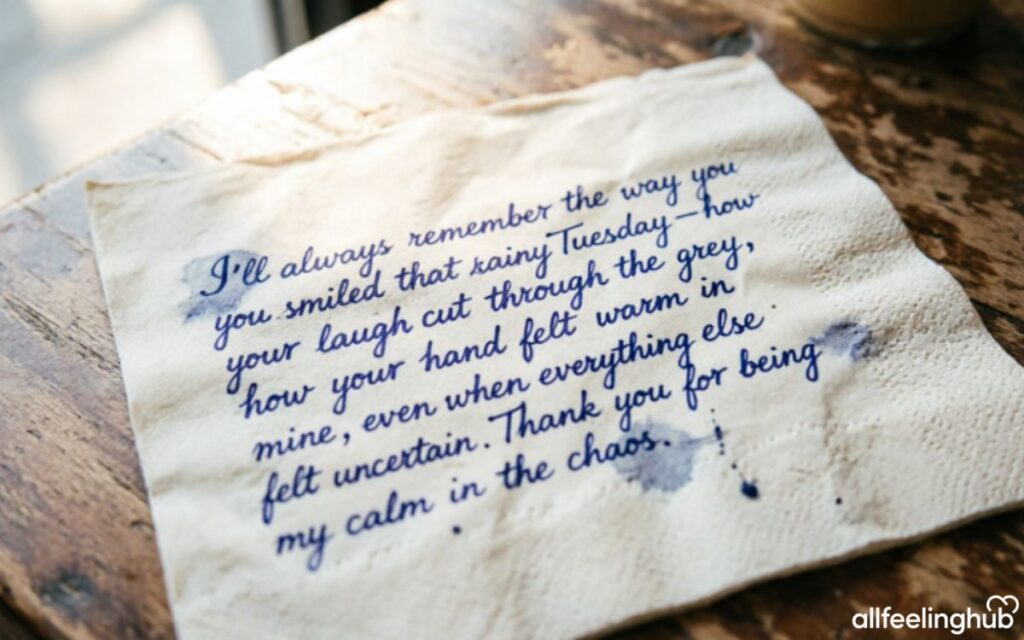 I'll always remember the way you
you smiled that rainy Tuesday—how
your laugh cut through the grey,
how your hand felt warm in
mine, even when everything else
felt uncertain. Thank you for being
my calm in the chaos.
allfeelinghub